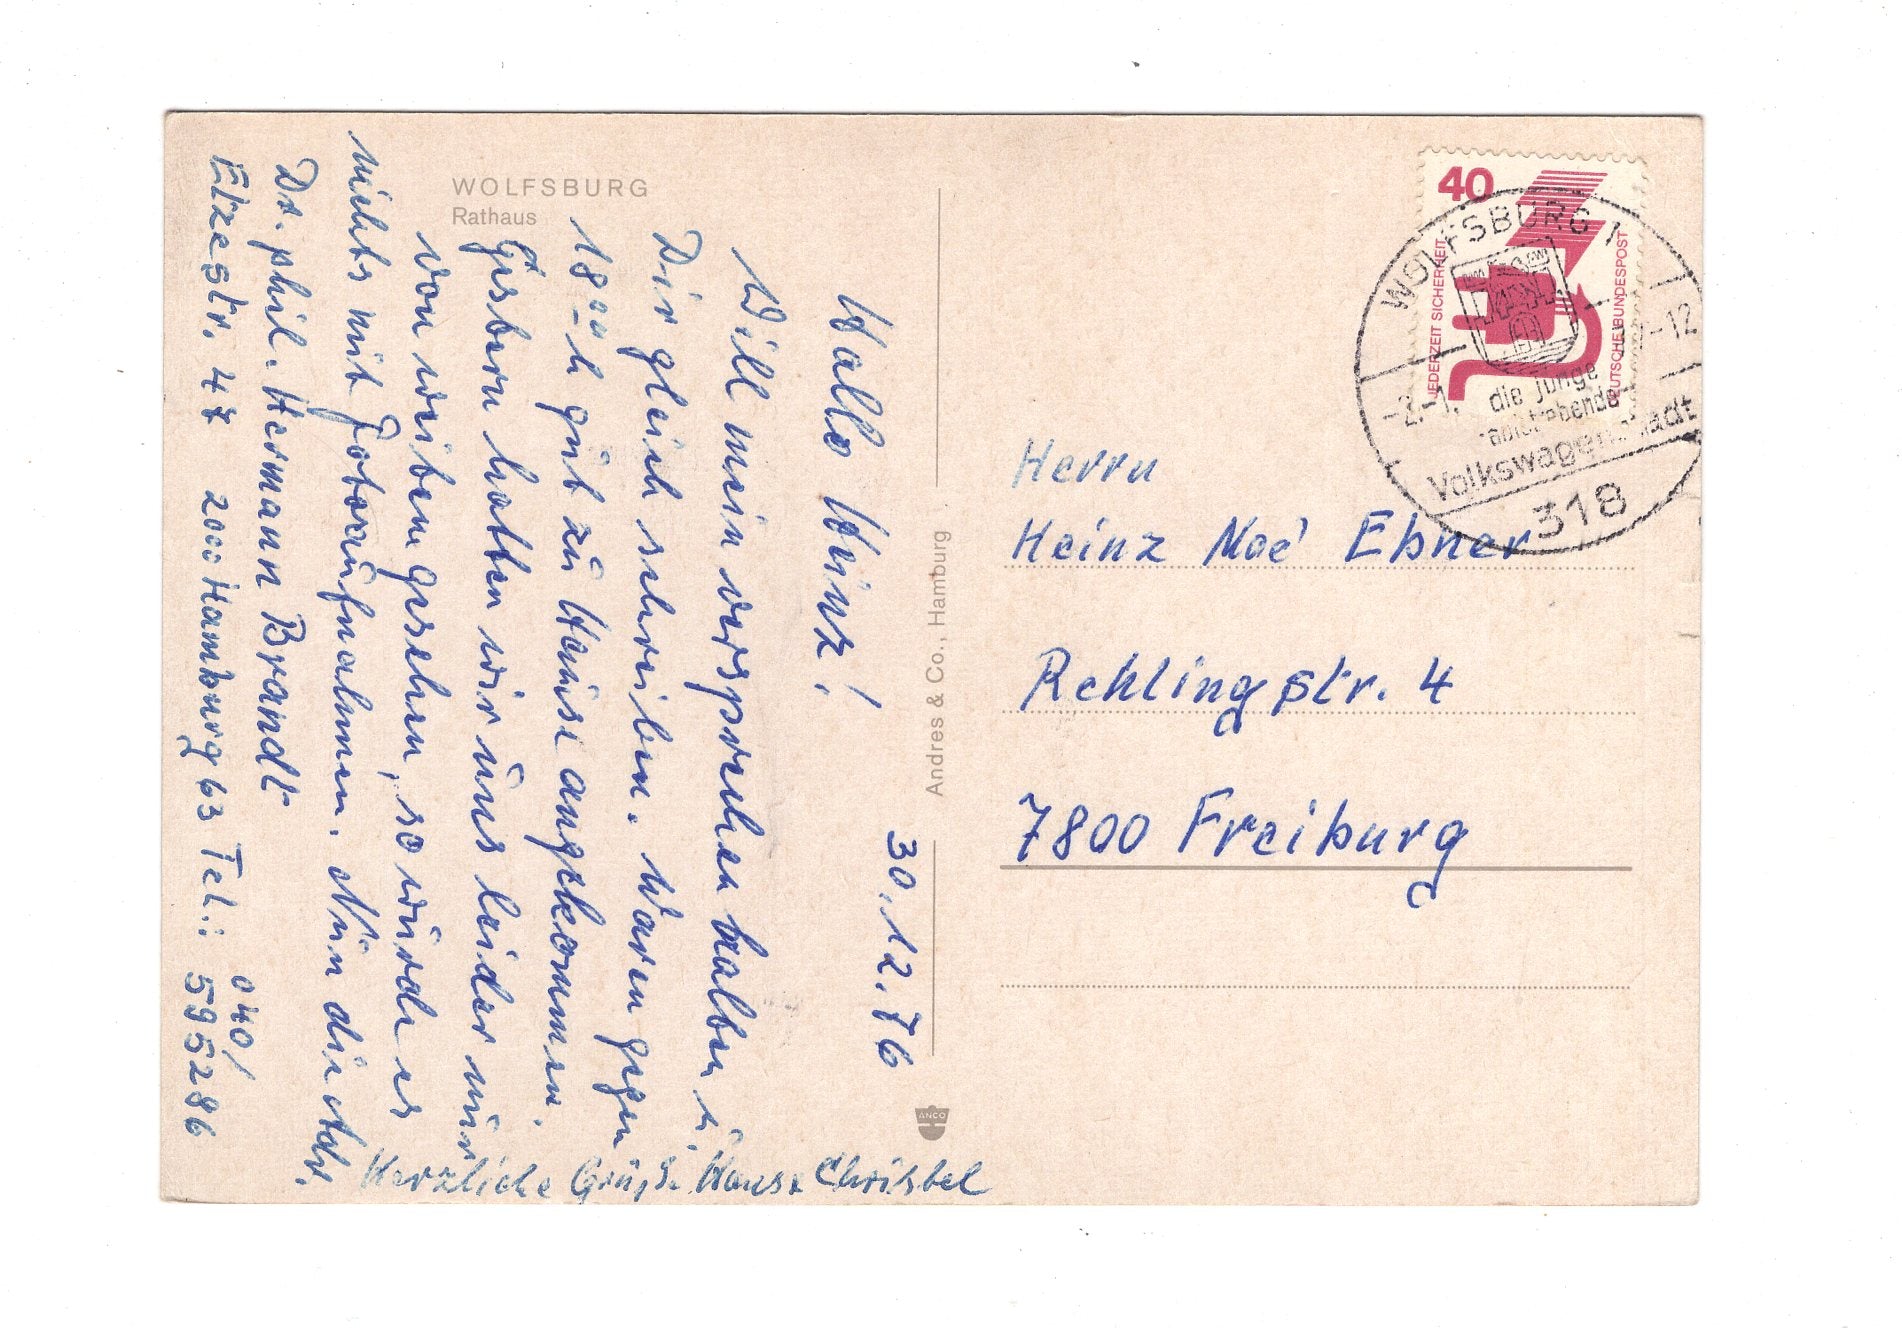 WOLFSBURG
Rathaus
30.12.76
Hallo Heinz!
Will mein versprechen halten u.
Dir gleich schreiben. Waren gegen
18ºº h gut zu Hause angekommen.
Gestern hatten wir uns leider nur
von weitem gesehen, so wurde es
nichts mit Fotoaufnahmen. Nun die Adr.
Dr. phil. Hermann Brandt
Elzestr. 47 2000 Hamburg 63 Tel.: 040/
595286
Herzliche Grüße Hans + Christel
Andres & Co., Hamburg
ANCO
40
JEDERZEIT SICHERHEIT
DEUTSCHE BUNDESPOST
WOLFSBURG 1
-2.-1. -12
die junge
aufstrebende
Volkswagenstadt
318
Herrn
Heinz Noé Ebner
Rehlingstr. 4
7800 Freiburg